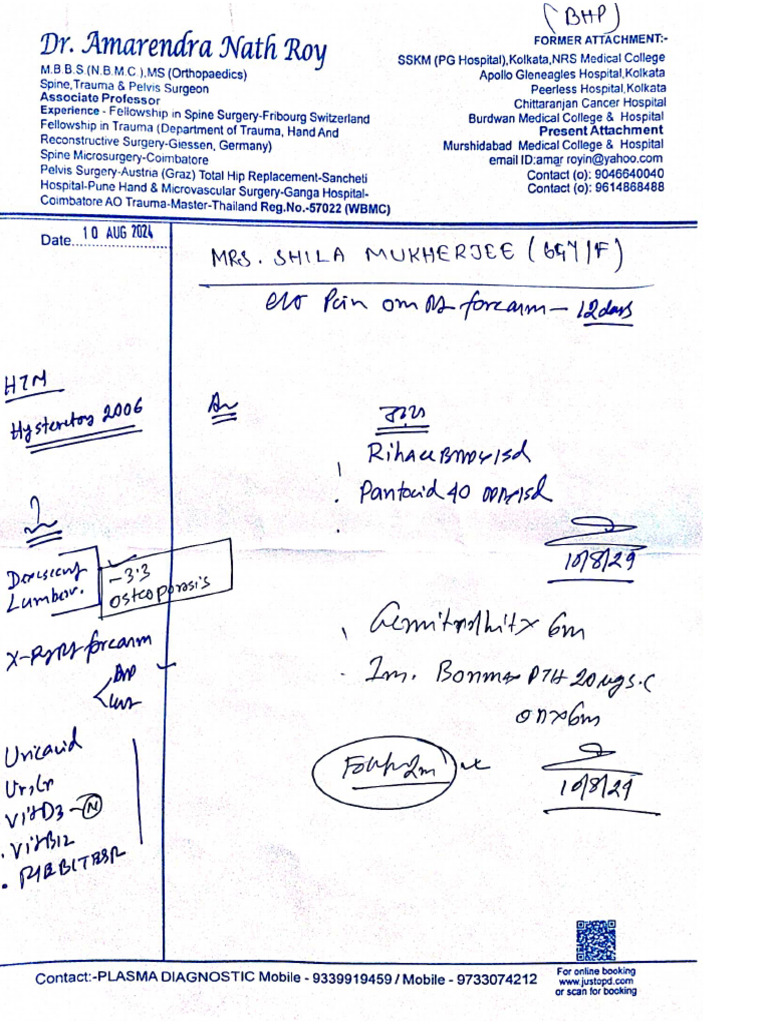 (BHP)
Dr. Amarendra Nath Roy
M.B.B.S.(N.B.M.C.),MS (Orthopaedics)
Spine,Trauma & Pelvis Surgeon
Associate Professor
Experience - Fellowship in Spine Surgery-Fribourg Switzerland
Fellowship in Trauma (Department of Trauma, Hand And
Reconstructive Surgery-Giessen, Germany)
Spine Microsurgery-Coimbatore
Pelvis Surgery-Austria (Graz) Total Hip Replacement-Sancheti
Hospital-Pune Hand & Microvascular Surgery-Ganga Hospital-
Coimbatore AO Trauma-Master-Thailand Reg.No.-57022 (WBMC)
FORMER ATTACHMENT:-
SSKM (PG Hospital),Kolkata,NRS Medical College
Apollo Gleneagles Hospital,Kolkata
Peerless Hospital,Kolkata
Chittaranjan Cancer Hospital
Burdwan Medical College & Hospital
Present Attachment
Murshidabad Medical College & Hospital
email ID:amar royin@yahoo.com
Contact (o): 9046640040
Contact (o): 9614868488
Date 10 AUG 2024
MRS. SHILA MUKHERJEE (69Y/F)
Pain forearm - 12 days
HTN
2006
Pantocid 40
10/8/24
Lumbar.
-3.3
Osteoporosis
X-Ray forearm
x 6m
PTH 20 S.C
x6m
2m
10/8/24
Uric acid
Ur, Cr
Vit D3 - (N)
Vit B12
Contact:-PLASMA DIAGNOSTIC Mobile - 9339919459 / Mobile - 9733074212
For online booking
www.justopd.com
or scan for booking